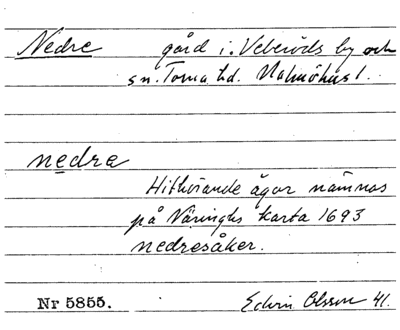 Nedre gård i Veberöds by och
sn. Torna hd. Malmöhus l.
nedre
Hithörande ägor nämnas
på Näringhs karta 1693
nedresåker.
Nr 5855. Edvin Olsson 41.